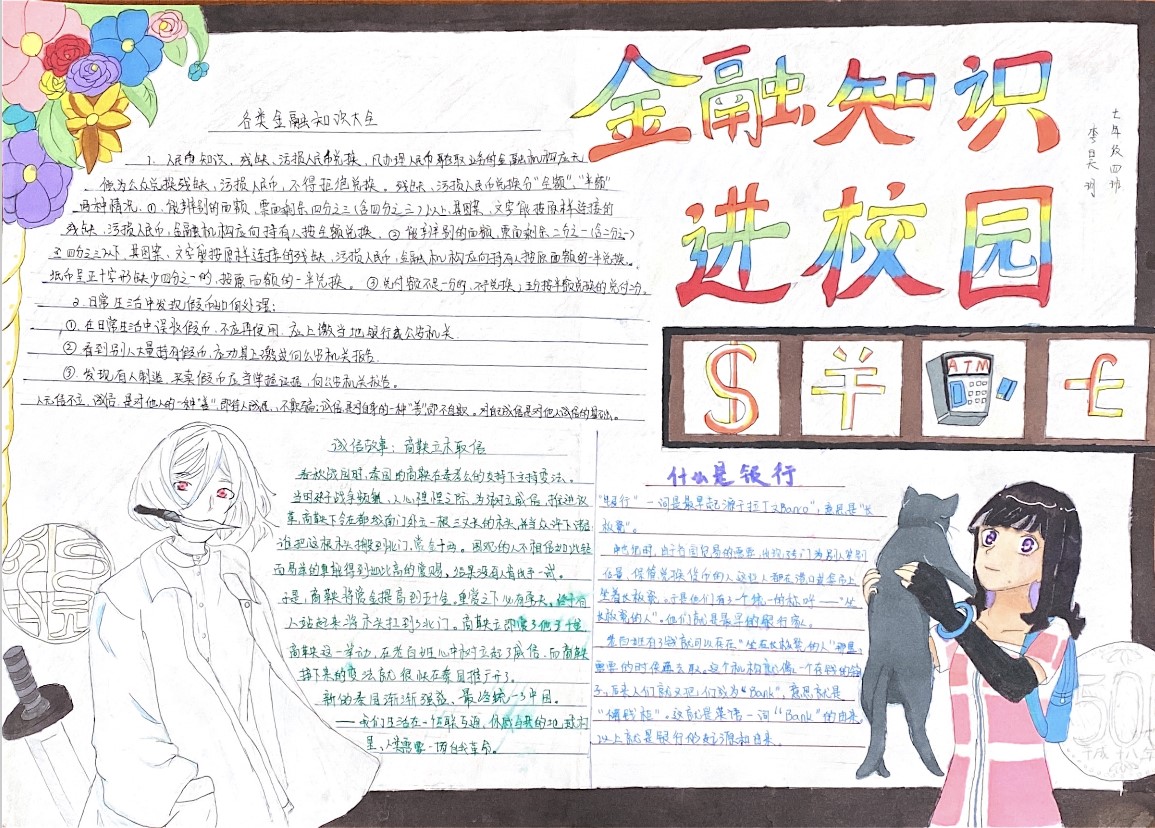 金融知识
进校园
七年级四班
各类金融知识大全
1、人民币知识，残缺、污损人民币兑换，凡办理人民币存取业务的金融机构应无
偿为公众兑换残缺、污损人民币，不得拒绝兑换。残缺、污损人民币兑换分"全额"、"半额"
两种情况。①、能辨别的面额，票面剩余四分之三（含四分之三）以上，其图案、文字能按原样连接的
残缺、污损人民币，金融机构应向持有人按全额兑换。②能辨别的面额，票面剩余二分之一（含二分之一）
至四分之三以下，其图案、文字能按原样连接的残缺、污损人民币，金融机构应向持有人按原面额的一半兑换。
纸币呈正十字形缺少四分之一的，按原面额的一半兑换。③兑付额不足一分的，不予兑换；五分按半额兑换的兑付二分。
2、日常生活中发现假币如何处理：
①在日常生活中误收假币，不应再使用，应上缴当地银行或公安机关
②看到别人大量持有假币，应劝其上缴或向公安机关报告
③发现有人制造、买卖假币应掌握证据，向公安机关报告。
人无信不立，诚信，是对他人的一种"善"即待人诚恳，不欺骗；诚信是对自身的一种"善"即不自欺。对自己诚信是对他人诚信的基础。
$
羊
ATM
£
诚信故事：商鞅立木取信
春秋战国时，秦国的商鞅在秦孝公的支持下主持变法。
当时处于战争频繁、人心惶惶之际，为了树立威信，推进改
革，商鞅下令在都城南门外立一根三丈长的木头，并当众许下诺言：
谁把这根木头搬到北门，赏金十两。围观的人不相信如此轻
而易举的事能得到如此高的赏赐，结果没有人肯出手一试。
于是，商鞅将赏金提高到五十金。重赏之下必有勇夫，终于有
人站起来将木头扛到了北门。商鞅立即赏了他五十金
商鞅这一举动，在老百姓心中树立起了威信，而商鞅
接下来的变法就很快在秦国推广开了。
新的秦国渐渐强盛，最终统一了中国。
什么是银行
"银行"一词是最早起源于拉丁文Banco"，意思是"长
板凳"。
坐着长板凳。于是他们有了一个统一的称呼——"坐
长板凳的人"。他们就是最早的银行家。
老百姓有了钱就可以存在"坐在长板凳的人"那里，
需要的时候再去取。这个机构就像一个存钱的箱
子，后来人们就又把他们成为"Bank"，意思就是
"储钱柜"。这就是英语一词"Bank"的由来。
以上就是银行的起源和由来。
50